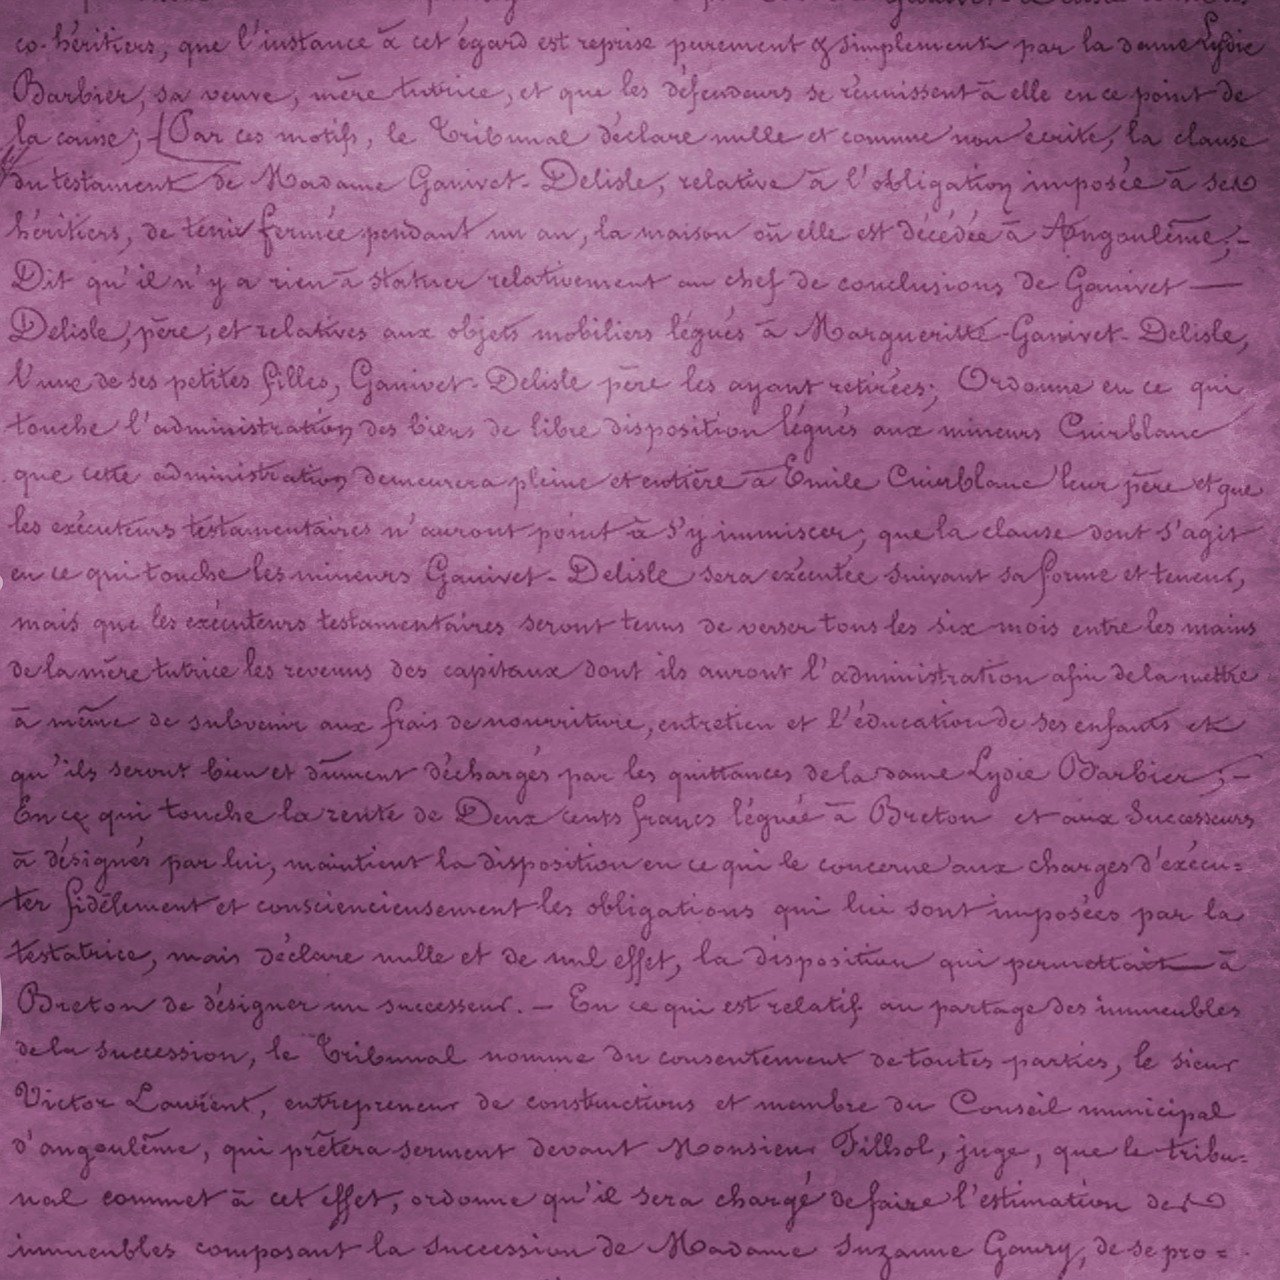 co-héritiers, que l'instance à cet égard est reprise purement & simplement par la dame Lydie
Barbier, sa veuve, mère tutrice, et que les défendeurs se réunissent à elle en ce point de
la cause; Par ces motifs, le Tribunal déclare nulle et comme non écrite, la clause
du testament de Madame Ganivet-Delisle, relative à l'obligation imposée à ses
héritiers, de tenir fermée pendant un an, la maison où elle est décédée à Angoulême;-
Dit qu'il n'y a rien à statuer relativement au chef de conclusions de Ganivet —
Delisle, père, et relatives aux objets mobiliers légués à Margueritte-Ganivet-Delisle,
l'une de ses petites filles, Ganivet-Delisle père les ayant retirées; Ordonne en ce qui
touche l'administration des biens de libre disposition légués aux mineurs Cuirblanc
que cette administration demeurera pleine et entière à Emile Cuirblanc leur père et que
les exécuteurs testamentaires n'auront point à s'y immiscer; que la clause dont s'agit
en ce qui touche les mineurs Ganivet-Delisle sera exécutée suivant sa forme et teneur,
mais que les exécuteurs testamentaires seront tenus de verser tous les six mois entre les mains
de la mère tutrice les revenus des capitaux dont ils auront l'administration afin de la mettre
à même de subvenir aux frais de nourriture, entretien et l'éducation de ses enfants et
qu'ils seront bien et dûment déchargés par les quittances de la dame Lydie Barbier;-
En ce qui touche la rente de Deux cents francs léguée à Breton et aux Successeurs
à désignés par lui, maintient la disposition en ce qui le concerne aux charges d'exécu=
ter fidèlement et consciencieusement les obligations qui lui sont imposées par la
testatrice, mais déclare nulle et de nul effet, la disposition qui permettait à
Breton de désigner un successeur. — En ce qui est relatif au partage des immeubles
de la succession, le Tribunal nomme du consentement de toutes parties, le sieur
Victor Laurent, entrepreneur de constructions et membre du Conseil municipal
d'angoulême, qui prêtera serment devant Monsieur Filhol, juge, que le tribu=
nal commet à cet effet, ordonne qu'il sera chargé de faire l'estimation des
immeubles composant la succession de Madame Suzanne Gaury, de se pro=